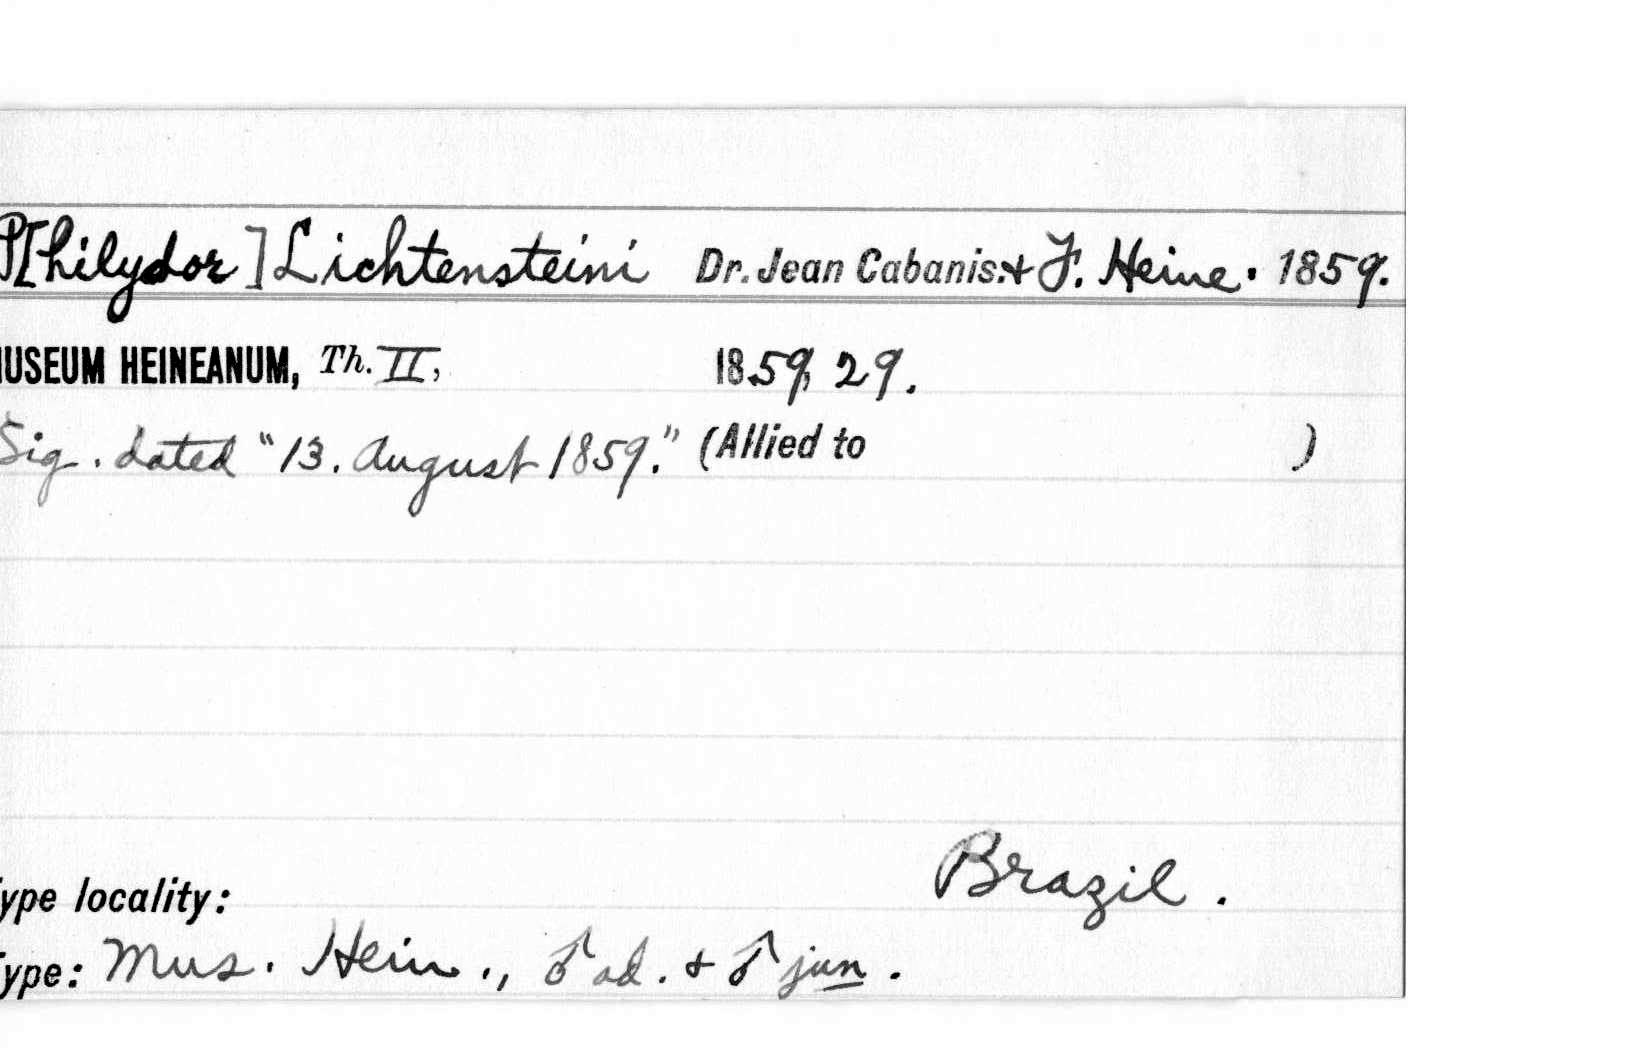 P[hilydor] Lichtensteini Dr. Jean Cabanis. & F. Heine. 1859.
MUSEUM HEINEANUM, Th. II, 1859, 29.
Sig. dated "13. August 1859." (Allied to )
Type locality: Brazil.
Type: Mus. Hein., ♂ ad. & ♂ jun.